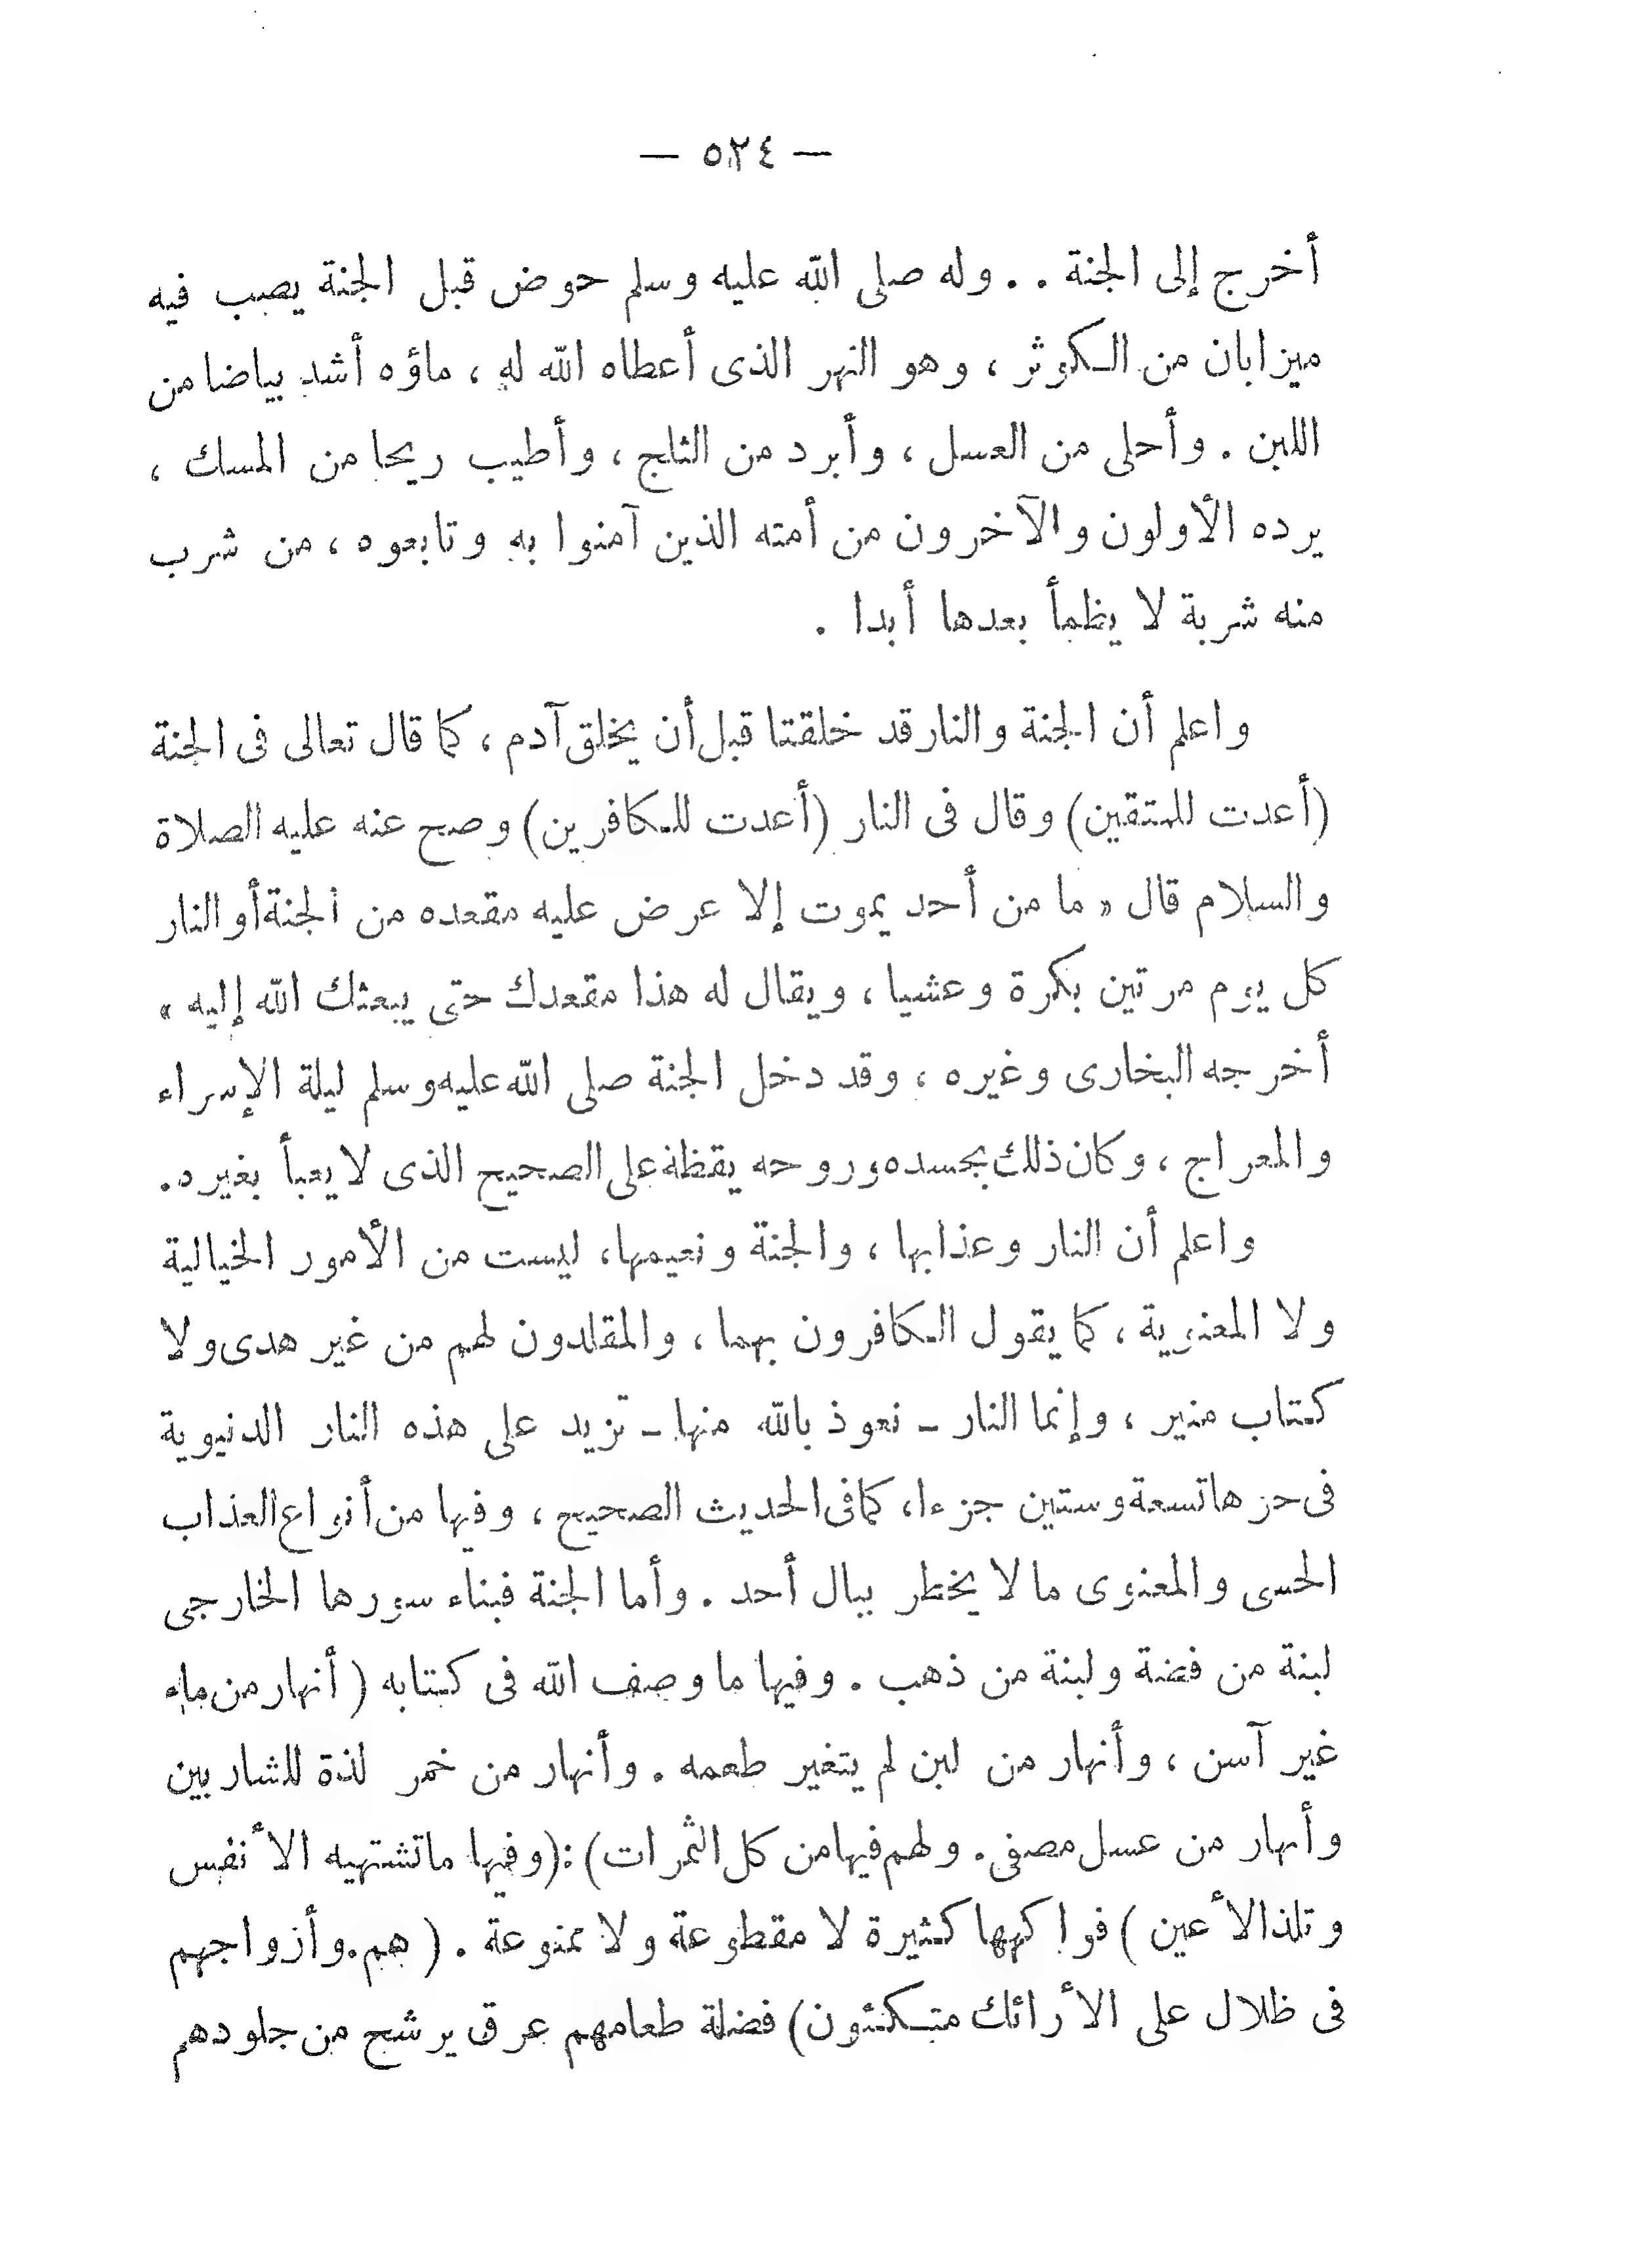 — ٥٢٤ —
أخرج إلى الجنة . . وله صلى الله عليه وسلم حوض قبل الجنة يصب فيه
ميزابان من الكوثر ، وهو النهر الذى أعطاه الله له ، ماؤه أشد بياضا من
اللبن . وأحلى من العسل ، وأبرد من الثلج ، وأطيب ريحا من المسك ،
يرده الأولون والآخرون من أمته الذين آمنوا به وتابعوه ، من شرب
منه شربة لا يظمأ بعدها أبدا .
واعلم أن الجنة والنار قد خلقتا قبل أن يخلق آدم ، كما قال تعالى فى الجنة
(أعدت للمتقين) وقال فى النار (أعدت للكافرين) وصح عنه عليه الصلاة
والسلام قال « ما من أحد يموت إلا عرض عليه مقعده من الجنة أو النار
كل يوم مرتين بكرة وعشيا ، ويقال له هذا مقعدك حتى يبعثك الله إليه »
أخرجه البخارى وغيره ، وقد دخل الجنة صلى الله عليه وسلم ليلة الإسراء
والمعراج ، وكان ذلك بجسده وروحه يقظة على الصحيح الذى لا يعبأ بغيره .
واعلم أن النار وعذابها ، والجنة ونعيمها ، ليست من الأمور الخيالية
ولا المعنوية ، كما يقول الكافرون بهما ، والمقلدون لهم من غير هدى ولا
كتاب منير ، وإنما النار – نعوذ بالله منها – تزيد على هذه النار الدنيوية
فى حرها تسعة وستين جزءا ، كما فى الحديث الصحيح ، وفيها من أنواع العذاب
الحسى والمعنوى ما لا يخطر ببال أحد . وأما الجنة فبناء سورها الخارجى
لبنة من فضة ولبنة من ذهب . وفيها ما وصف الله فى كتابه ( أنهار من ماء
غير آسن ، وأنهار من لبن لم يتغير طعمه . وأنهار من خمر لذة للشاربين
وأنهار من عسل مصفى . ولهم فيها من كل الثمرات) : (وفيها ما تشتهيه الأنفس
وتلذ الأعين ) فواكهها كثيرة لا مقطوعة ولا ممنوعة . ( هم وأزواجهم
فى ظلال على الأرائك متكئون) فضلة طعامهم عرق يرشح من جلودهم